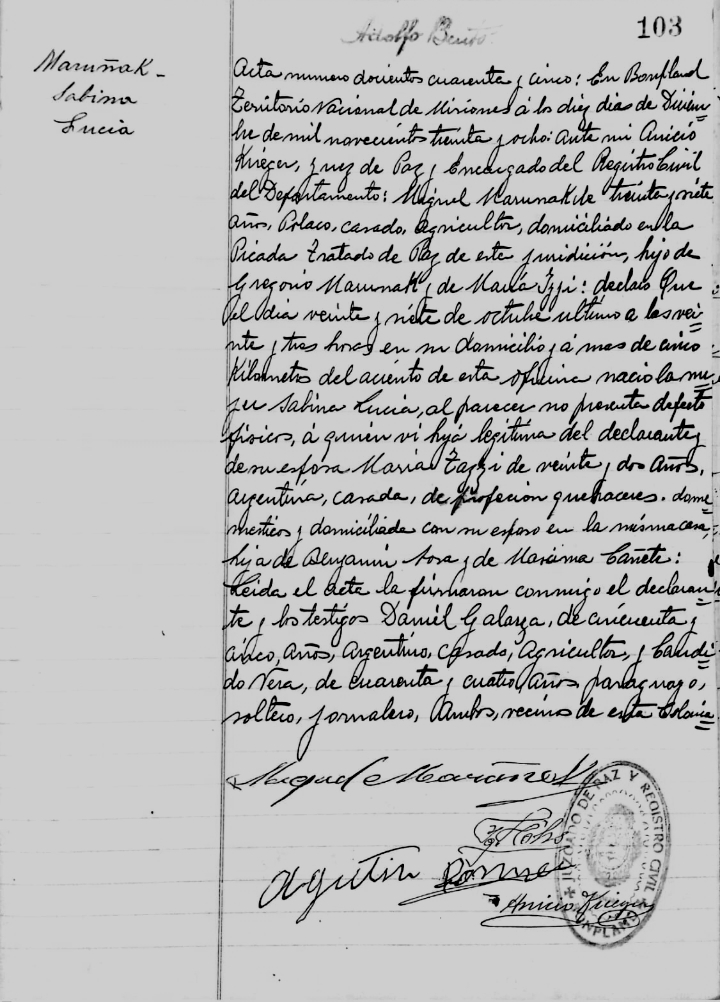 103
Adolfo
Maruñak -
Sabina
Lucia
Acta numero docientos cuarenta y cinco: En Bonpland
Territorio Nacional de Misiones á los diez dias de Diciem
bre de mil novecientos treinta y ocho: Ante mi Anicio
Krieger, Juez de Paz y Encargado del Registro Civil
del Departamento: Miguel Marunak de treinta y siete
años, Polaco, casado, agricultor, domiciliado en la
Picada Tratado de Paz de esta juridición, hijo de
Gregorio Marunak y de María Izzi: declaro Que
el dia veinte y siete de octubre ultimo a las vei
nte y tres horas en su domicilio y á mas de cinco
Kilometros del aciento de esta oficina nacio la mu
jer Sabina Lucia, al parecer no presenta defecto
físicos, á quién vi hija legitima del declarante y
de su esposa María Tazzi de veinte y dos Años,
argentina, casada, de profecion quehaceres. dome
mesticos y domiciliada con su esposo en la misma casa,
hija de Benjamin Sosa y de Maxima Cañete:
Leida el Acta la firmaron conmigo el declaran
te y los testigos Daniel Galarza, de cincuenta y
cinco, Años, Argentino, casado, Agricultor, y Candi
do Vera, de cuarenta y cuatro Años paraguayo,
soltero, jornalero, Ambos, vecinos de esta Colonia
Miguel Maruñak
Agutin
Anicio Krieger
JUZGADO DE PAZ Y REGISTRO CIVIL
BONPLAND